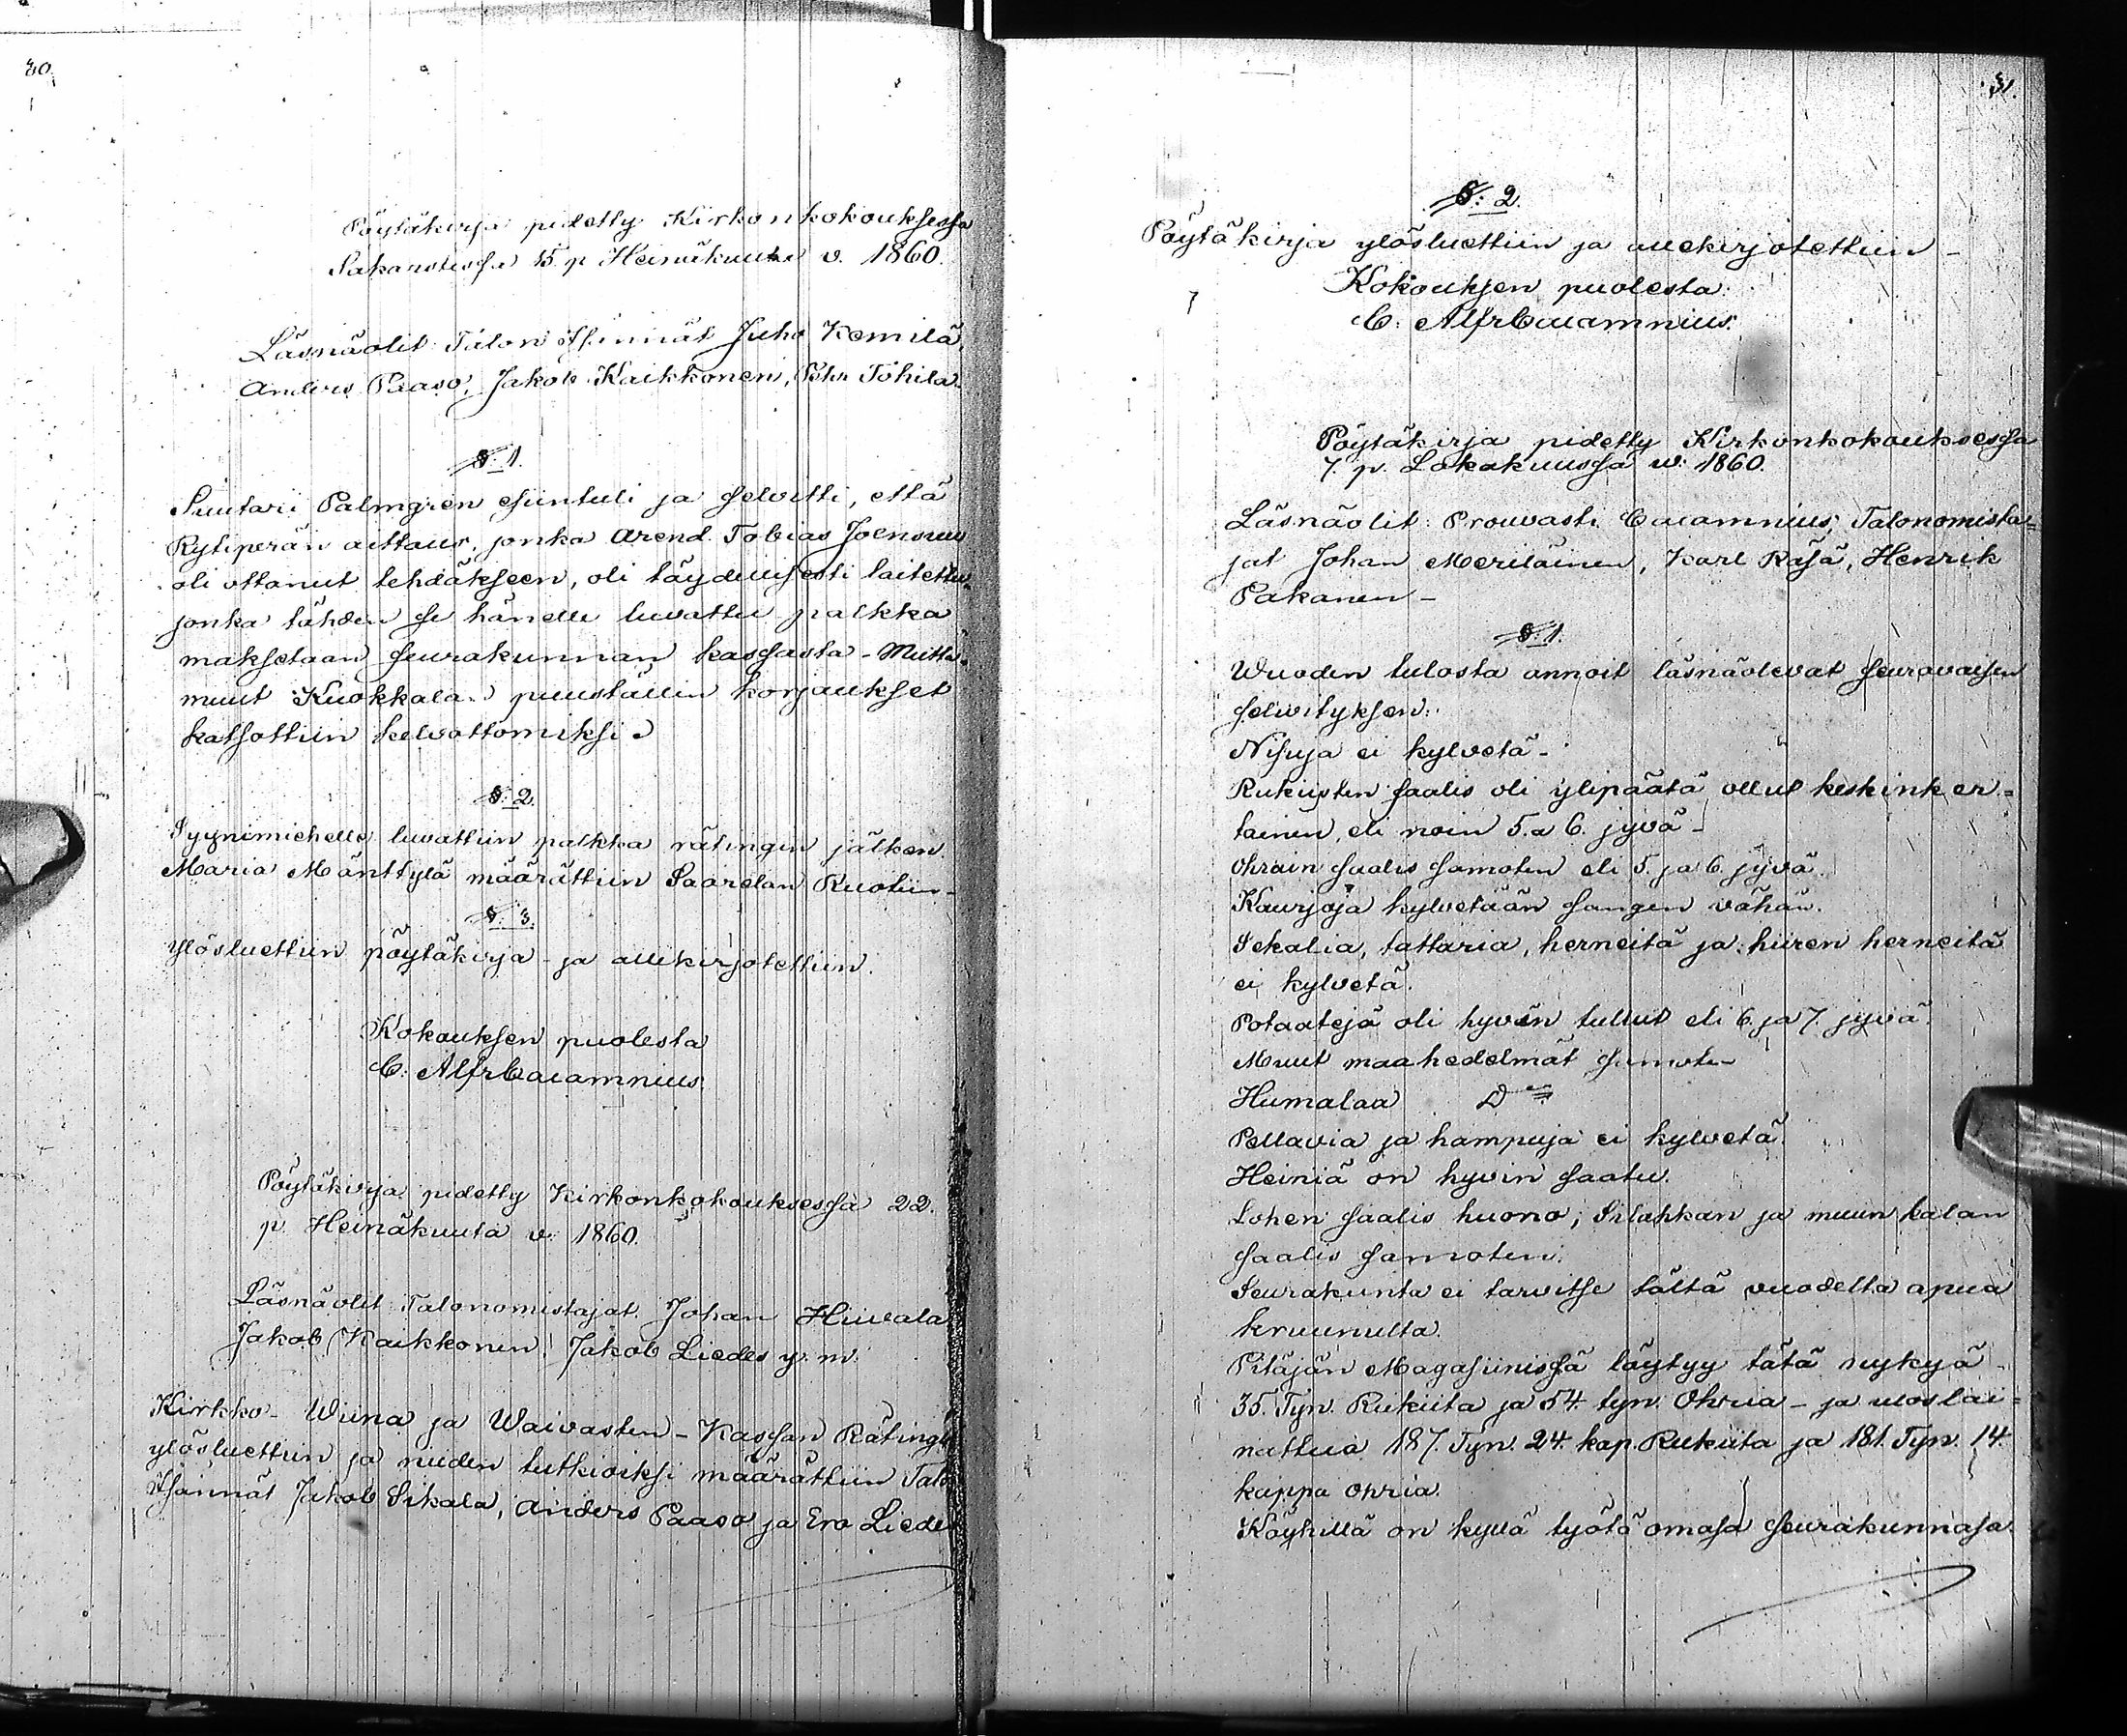 80.
Pöytäkirja pidetty Kirkonkokouksessa
Sakaristissa 15 p Heinäkuuta v. 1860.
Läsnäolit: Talon isännät Juho Kemilä,
Anders Paaso, Jakob Kaikkonen, Pehr Tohila.
§: 1.
Suutari Palmgren esiintuli ja selvitti, että
Rytiperän aittaus, jonka Arend. Tobias Joensuu
oli ottanut tehdäkseen, oli täydellisesti laitettu,
jonka tähden se hänelle luvattu palkka
maksetaan seurakunnan kassasta - Mutta
muut Kuokkalan puuställin korjaukset
katsottiin kelvottomiksi.
§: 2.
Syynimiehelle luvattiin palkka rätingin jälken.
Maria Mänttylä määrättiin Saarelan Ruotiin -
§: 3.
Ylösluettiin pöytäkirja - ja allekirjotettiin.
Kokouksen puolesta
C. Alfr Cajamnius.
Pöytäkirja pidetty Kirkonkokouksessa 22.
p. Heinäkuuta v. 1860.
Läsnäolit: Talonomistajat Johan Hiuvala
Jakob Kaikkonen, Jakob Liedes y. m.
Kirkko- Wiina ja Waivasten - Kassan Rätingi
ylösluettiin ja niiden tutkioiksi määrättiin Talon
Isännät Jakob Sikala, Anders Paaso ja Ero Liedes
81.
§: 2.
Pöytäkirja ylösluettiin ja allekirjotettiin -
Kokouksen puolesta:
C. Alfr Cajamnius.
Pöytäkirja pidetty Kirkonkokouksessa
7. p. Lokakuussa w. 1860.
Läsnäolit: Prouvasti Cajamnius, Talonomista=
jat Johan Meriläinen, Karl Räsä, Henrik
Pakanen -
§: 1.
Wuoden tulosta annoit läsnäolevat seuravaisen
selvityksen:
Nisuja ei kylvetä -
Rukiisten saalis oli ylipäätä ollut keskinker=
tainen, eli noin 5. a 6. jyvä -
Ohrain saalis samoten eli 5. ja 6. jyvä.
Kaurjoja kylvetään sangen vähän.
Sekalia, tattaria, herneitä ja hiiren herneitä
ei kylvetä.
Potaateja oli hyvin tullut eli 6. ja 7. jyvä.
Muut maahedelmät samote -
Humalaa D=
Pellavia ja hampuja ei kylvetä.
Heiniä on hyvin saatu.
Lohen saalis huono; Silahkan ja muun kalan
saalis samoten.
Seurakunta ei tarvitse tältä vuodelta apua
kruunulta.
Pitäjän Magasiinissa löytyy tätä nykyä
35. Tyn. Rukiita ja 54 tyn. Ohria - ja uloslai=
nattua 187. Tyn. 24. kap. Rukiita ja 181. Tyn. 14.
kappa ohria.
Köyhillä on kyllä työtä omasa seurakunnasa.